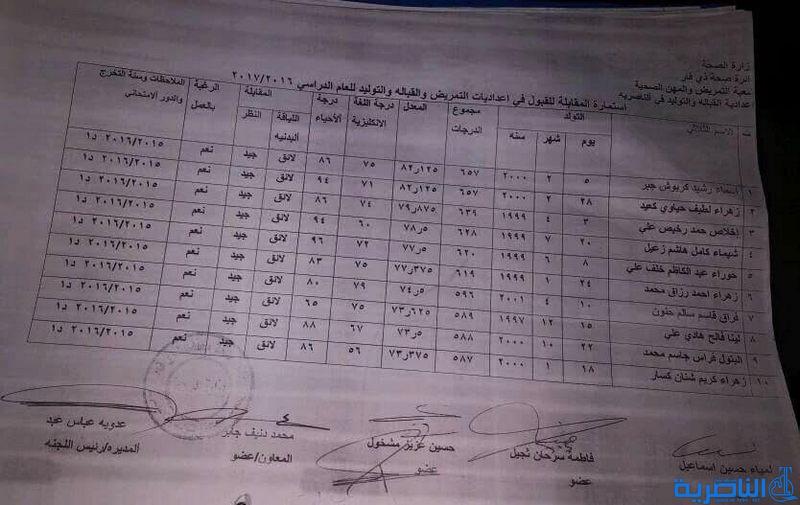 وزارة الصحة
دائرة صحة ذي قار
شعبة التمريض والمهن الصحية
اعدادية القباله والتوليد في الناصريه
استمارة المقابلة للقبول في اعداديات التمريض والقباله والتوليد للعام الدراسي ٢٠١٧/٢٠١٦
ت الاسم الثلاثي التولد يوم شهر سنه مجموع الدرجات المعدل درجة اللغة الانكليزية درجة الأحياء المقابلة اللياقة البدنيه النظر الرغبة بالعمل الملاحظات وسنة التخرج والدور الامتحاني
١ اسماء رشيد كريوش جبر ٥ ٢ ٢٠٠٠ ٦٥٧ ٨٢٫١٢٥ ٧٥ ٨٦ لائق جيد نعم ٢٠١٦/٢٠١٥ د١
٢ زهراء لطيف حياوي كعيد ٢٨ ٢ ٢٠٠٠ ٦٥٧ ٨٢٫١٢٥ ٧١ ٩٤ لائق جيد نعم ٢٠١٦/٢٠١٥ د١
٣ إخلاص حمد رخيص علي ٣ ٤ ١٩٩٩ ٦٣٩ ٧٩٫٨٧٥ ٧٤ ٨٦ لائق جيد نعم ٢٠١٦/٢٠١٥ د١
٤ شيماء كامل هاشم زعيل ٢٠ ٧ ١٩٩٩ ٦٢٨ ٧٨٫٥ ٦٠ ٩٤ لائق جيد نعم ٢٠١٦/٢٠١٥ د١
٥ حوراء عبد الكاظم خلف علي ٨ ٦ ١٩٩٩ ٦٢٠ ٧٧٫٥ ٧٢ ٩٦ لائق جيد نعم ٢٠١٦/٢٠١٥ د١
٦ زهراء احمد رزاق محمد ٢٤ ١ ١٩٩٩ ٦١٩ ٧٧٫٣٧٥ ٧٥ ٨٣ لائق جيد نعم ٢٠١٦/٢٠١٥ د١
٧ فراق قاسم سالم حنون ١٠ ٤ ٢٠٠١ ٥٩٦ ٧٤٫٥ ٧٩ ٨٠ لائق جيد نعم ٢٠١٦/٢٠١٥ د١
٨ لينا فالح هادي علي ١٥ ١٢ ١٩٩٧ ٥٨٩ ٧٣٫٦٢٥ ٧٥ ٦٥ لائق جيد نعم ٢٠١٦/٢٠١٥ د١
٩ البتول فراس جاسم محمد ٢٢ ١٠ ٢٠٠٠ ٥٨٨ ٧٣٫٥ ٦٧ ٨٨ لائق جيد نعم ٢٠١٦/٢٠١٥ د١
١٠ زهراء كريم شنان كسار ١٨ ١ ٢٠٠٠ ٥٨٧ ٧٣٫٣٧٥ ٥٦ ٨٦ لائق جيد نعم ٢٠١٦/٢٠١٥ د١
لمياء حسين اسماعيل فاطمة سرحان ثجيل حسين عزيز مشخول محمد دنيف جابر عدويه عباس عبد
عضو عضو المعاون/عضو المديره/رئيس اللجنه
الناصرية